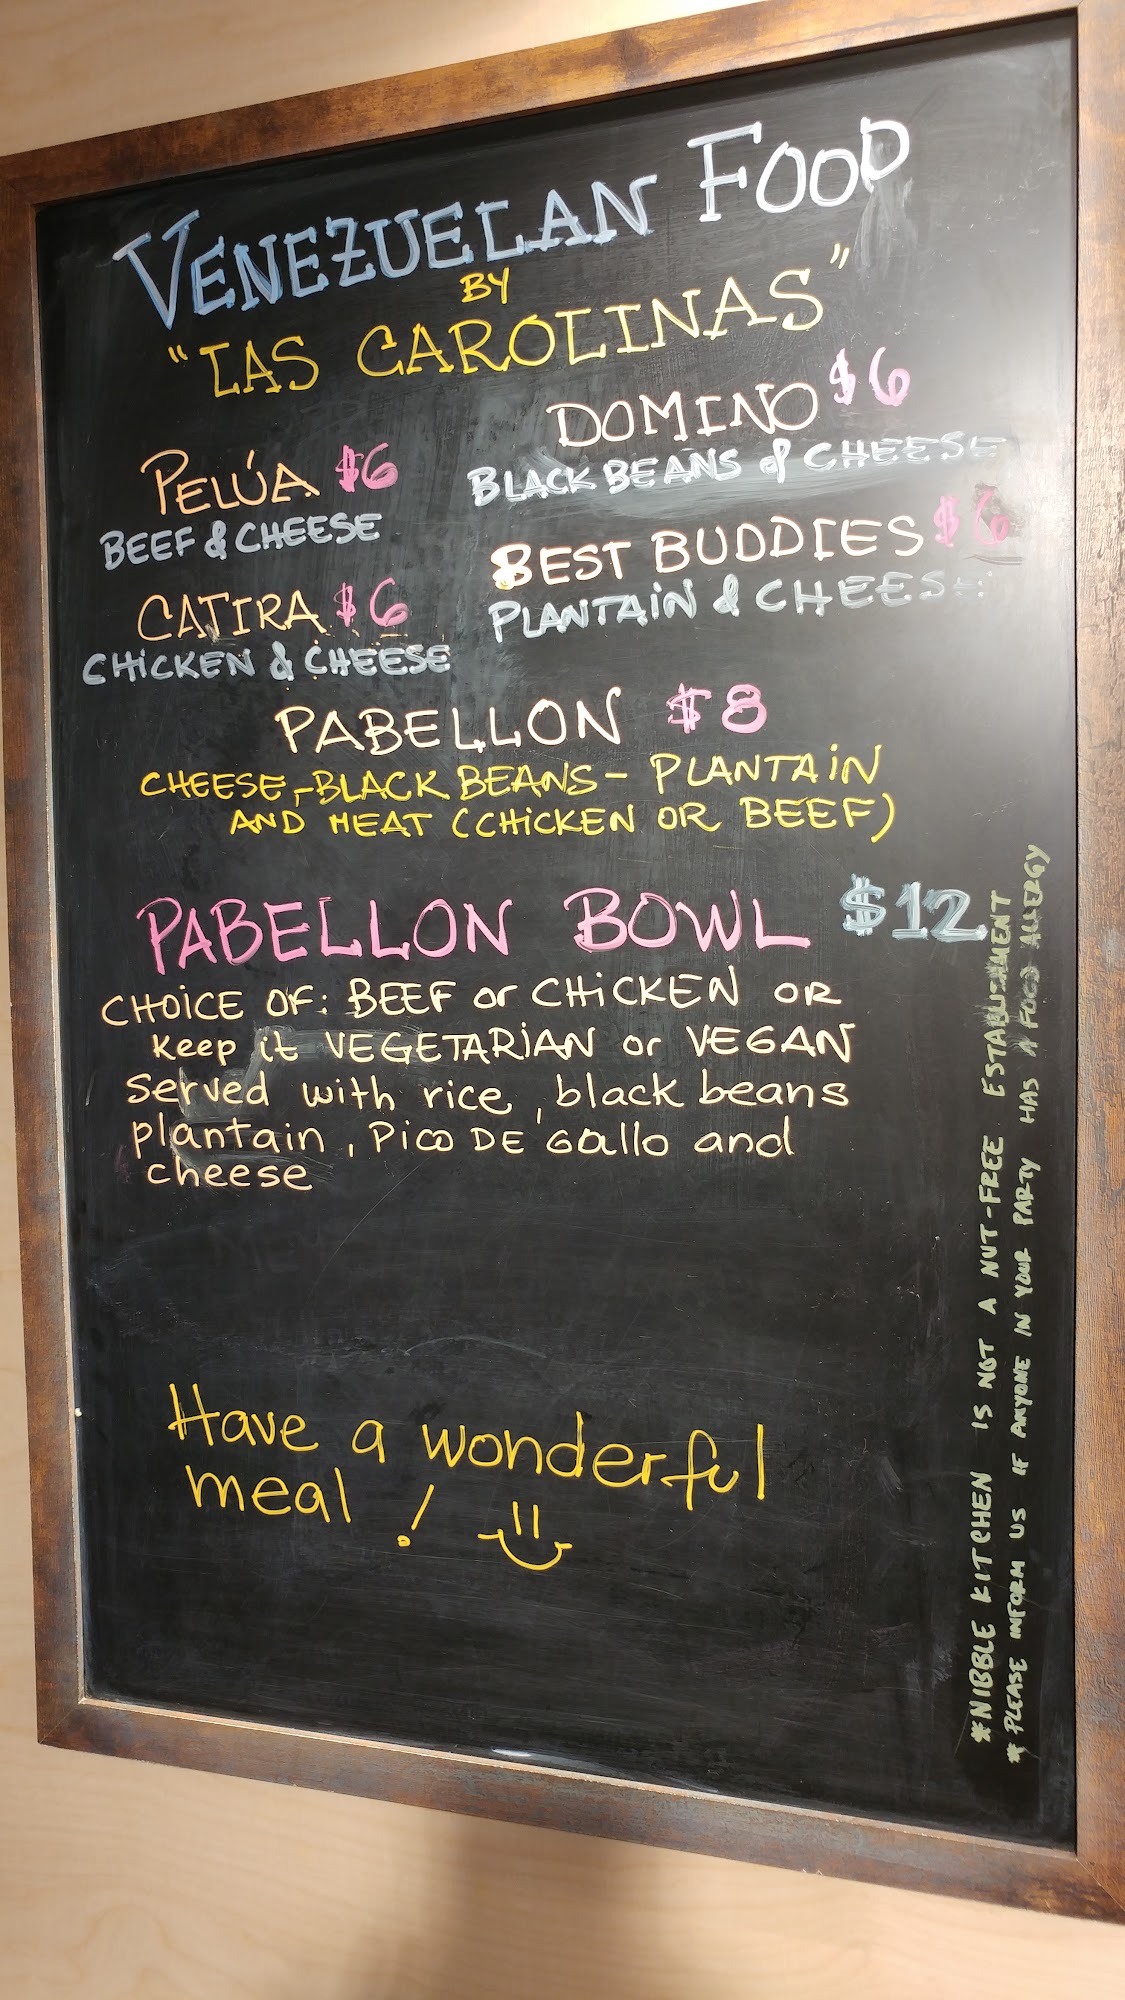 VENEZUELAN FOOD
BY
"LAS CAROLINAS"
PELÚA $6
BEEF & CHEESE
CATIRA $6
CHICKEN & CHEESE
DOMINO $6
BLACK BEANS & CHEESE
BEST BUDDIES $6
PLANTAIN & CHEESE
PABELLON $8
CHEESE-BLACK BEANS- PLANTAIN
AND MEAT (CHICKEN OR BEEF)
PABELLON BOWL $12
CHOICE OF: BEEF or CHICKEN OR
keep it VEGETARIAN or VEGAN
served with rice, black beans
plantain, PICO DE Gallo and
cheese
Have a wonderful
meal! 
*NIBBLE KITCHEN IS NOT A NUT-FREE ESTABLISHMENT
*PLEASE INFORM US IF ANYONE IN YOUR PARTY HAS A FOOD ALLERGY